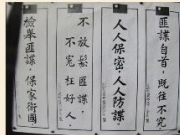 匪諜自首，既往不究
人人保密，人人防諜。
不放鬆匪諜，
不冤枉好人
檢舉匪諜
保家衛國